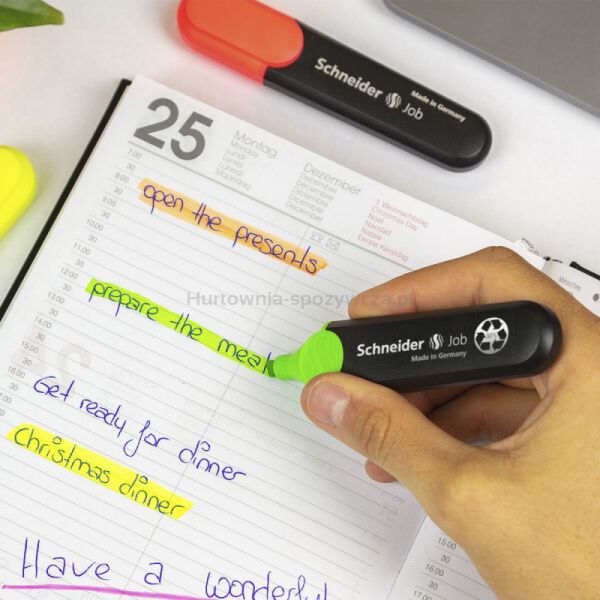 Schneider Job
Made in Germany
25
Montag
Monday
Lundi
Lunes
Lunedì
Maandag
Dezember
December
Décembre
Diciembre
Dicembre
December
1. Weihnachtstag
Christmas Day
Noël
Navidad
Natale
Eerste Kerstdag
Woche
7.00
30
8.00
30
9.00
30
10.00
30
11.00
30
12.00
30
13.00
30
14.00
30
15.00
30
16.00
30
17.00
30
open the presents
prepare the meal
Get ready for dinner
Christmas dinner
Have a wonderful
Hurtownia-spozywcza.pl
Schneider Job
Made in Germany
15.00
30
16.00
30
17.00
30
18.00